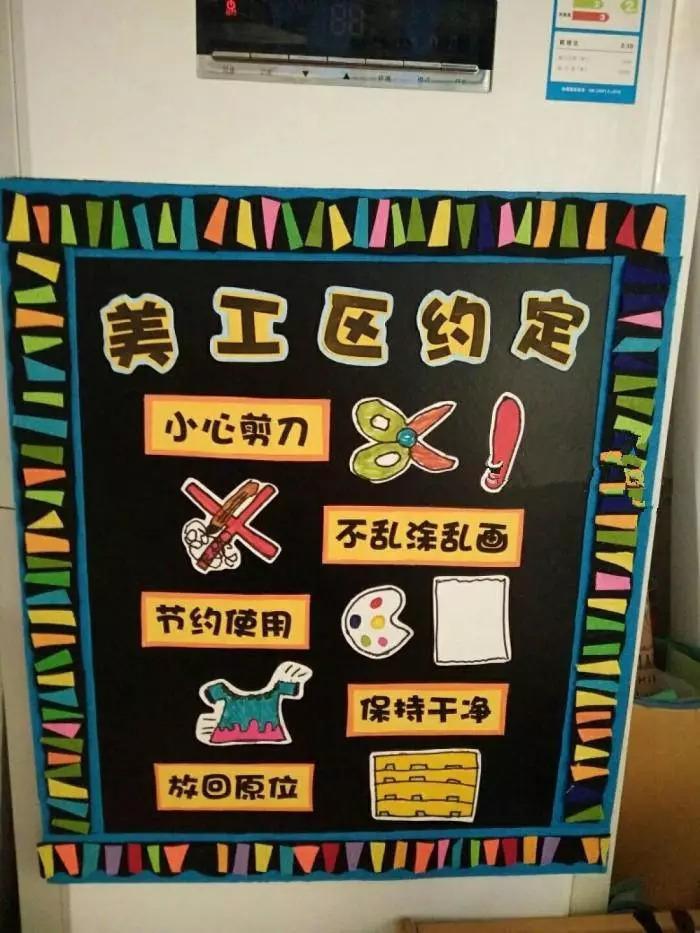 美工区约定
小心剪刀
不乱涂乱画
节约使用
保持干净
放回原位